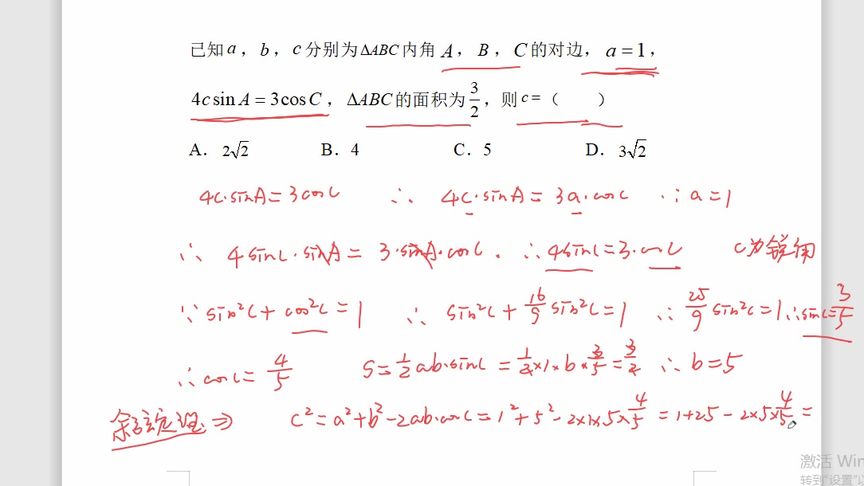 已知a，b，c分别为ΔABC内角A，B，C的对边，a=1，
4c sin A = 3cos C，ΔABC的面积为3/2，则c=（　　）
A. 2√2　B. 4　C. 5　D. 3√2
4c·sinA=3cosC ∴ 4c·sinA=3a·cosC ∵a=1
∴ 4sinC·sinA=3·sinA·cosC. ∴4sinC=3·cosC C为锐角
∵sin²C+cos²C=1 ∴ sin²C+16/9 sin²C=1 ∴ 25/9 sin²C=1 ∴sinC=3/5
∴cosC=4/5 S=1/2 ab·sinC=1/2×1×b×3/5=3/2 ∴b=5
余弦定理⇒ c²=a²+b²-2ab·cosC=1²+5²-2×1×5×4/5=1+25-2×5×4/5=
激活 Win
转到"设置"以